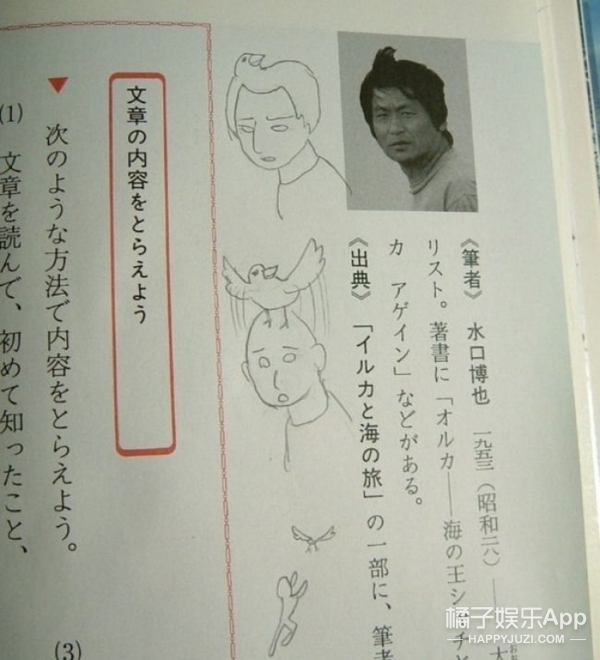 《筆者》 水口博也 一九五三(昭和二八)――大
リスト。著書に「オルカ――海の王シャチと
カ アゲイン」などがある。
《出典》「イルカと海の旅」の一部に、筆者
文章の内容をとらえよう
▼ 次のような方法で内容をとらえよう。
(1) 文章を読んで、初めて知ったこと、
(3)
橘子娱乐App
HAPPYJUZI.COM